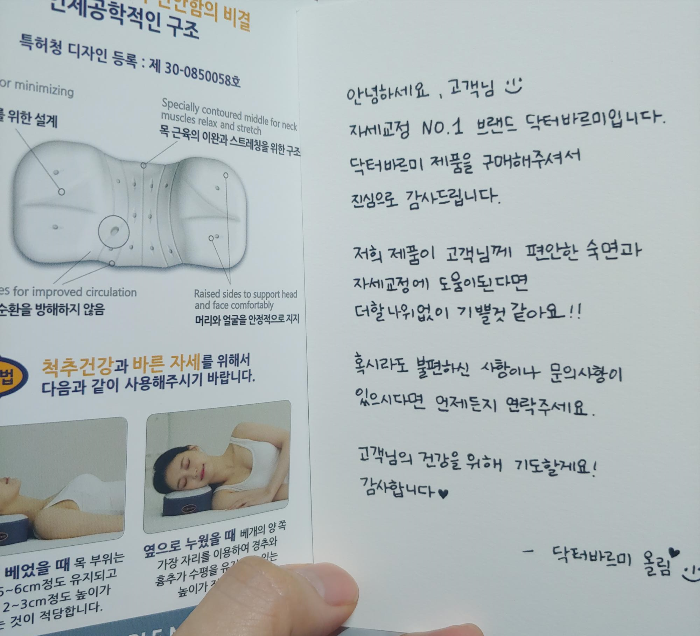 편안함의 비결
인체공학적인 구조
특허청 디자인 등록 : 제 30-0850058호
or minimizing
를 위한 설계
Specially contoured middle for neck
muscles relax and stretch
목 근육의 이완과 스트레칭을 위한 구조
es for improved circulation
순환을 방해하지 않음
Raised sides to support head
and face comfortably
머리와 얼굴을 안정적으로 지지
법
척추건강과 바른 자세를 위해서
다음과 같이 사용해주시기 바랍니다.
베었을 때 목 부위는
5~6cm정도 유지되고
2~3cm정도 높이가
것이 적당합니다.
옆으로 누웠을 때 베개의 양 쪽
가장 자리를 이용하여 경추와
흉추가 수평을
높이가
안녕하세요, 고객님
자세교정 NO.1 브랜드 닥터바르미입니다.
닥터바르미 제품을 구매해주셔서
진심으로 감사드립니다.
저희 제품이 고객님께 편안한 숙면과
자세교정에 도움이된다면
더할나위없이 기쁠것 같아요!!
혹시라도 불편하신 사항이나 문의사항이
있으시다면 언제든지 연락주세요.
고객님의 건강을 위해 기도할게요!
감사합니다♥
- 닥터바르미 올림♥